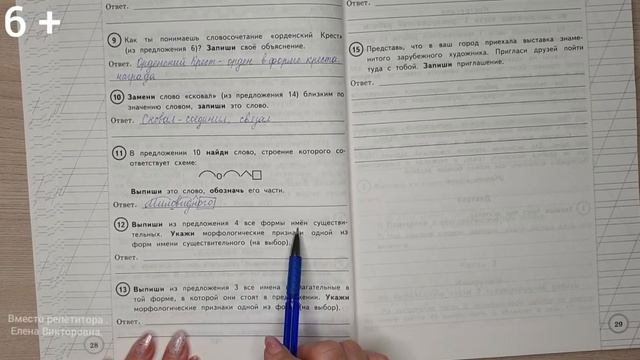 6 +
Ответ.
9 Как ты понимаешь словосочетание «орденский Крест»
(из предложения 6)? Запиши своё объяснение.
Ответ. Орденский Крест - орден в форме креста,
награда
10 Замени слово «сковал» (из предложения 14) близким по
значению словом, запиши это слово.
Ответ. Сковал - соединил, связал
11 В предложении 10 найди слово, строение которого со-
ответствует схеме:
Выпиши это слово, обозначь его части.
Ответ. Миловидного
12 Выпиши из предложения 4 все формы имён существи-
тельных. Укажи морфологические признаки одной из
форм имени существительного (на выбор).
Ответ.
13 Выпиши из предложения 3 все имена прилагательные в
той форме, в которой они стоят в предложении. Укажи
морфологические признаки одной из форм (на выбор).
Ответ.
28
15 Представь, что в ваш город приехала выставка знаме-
нитого зарубежного художника. Пригласи друзей пойти
туда с тобой. Запиши приглашение.
Ответ.
29
Вместо репетитора
Елена Викторовна